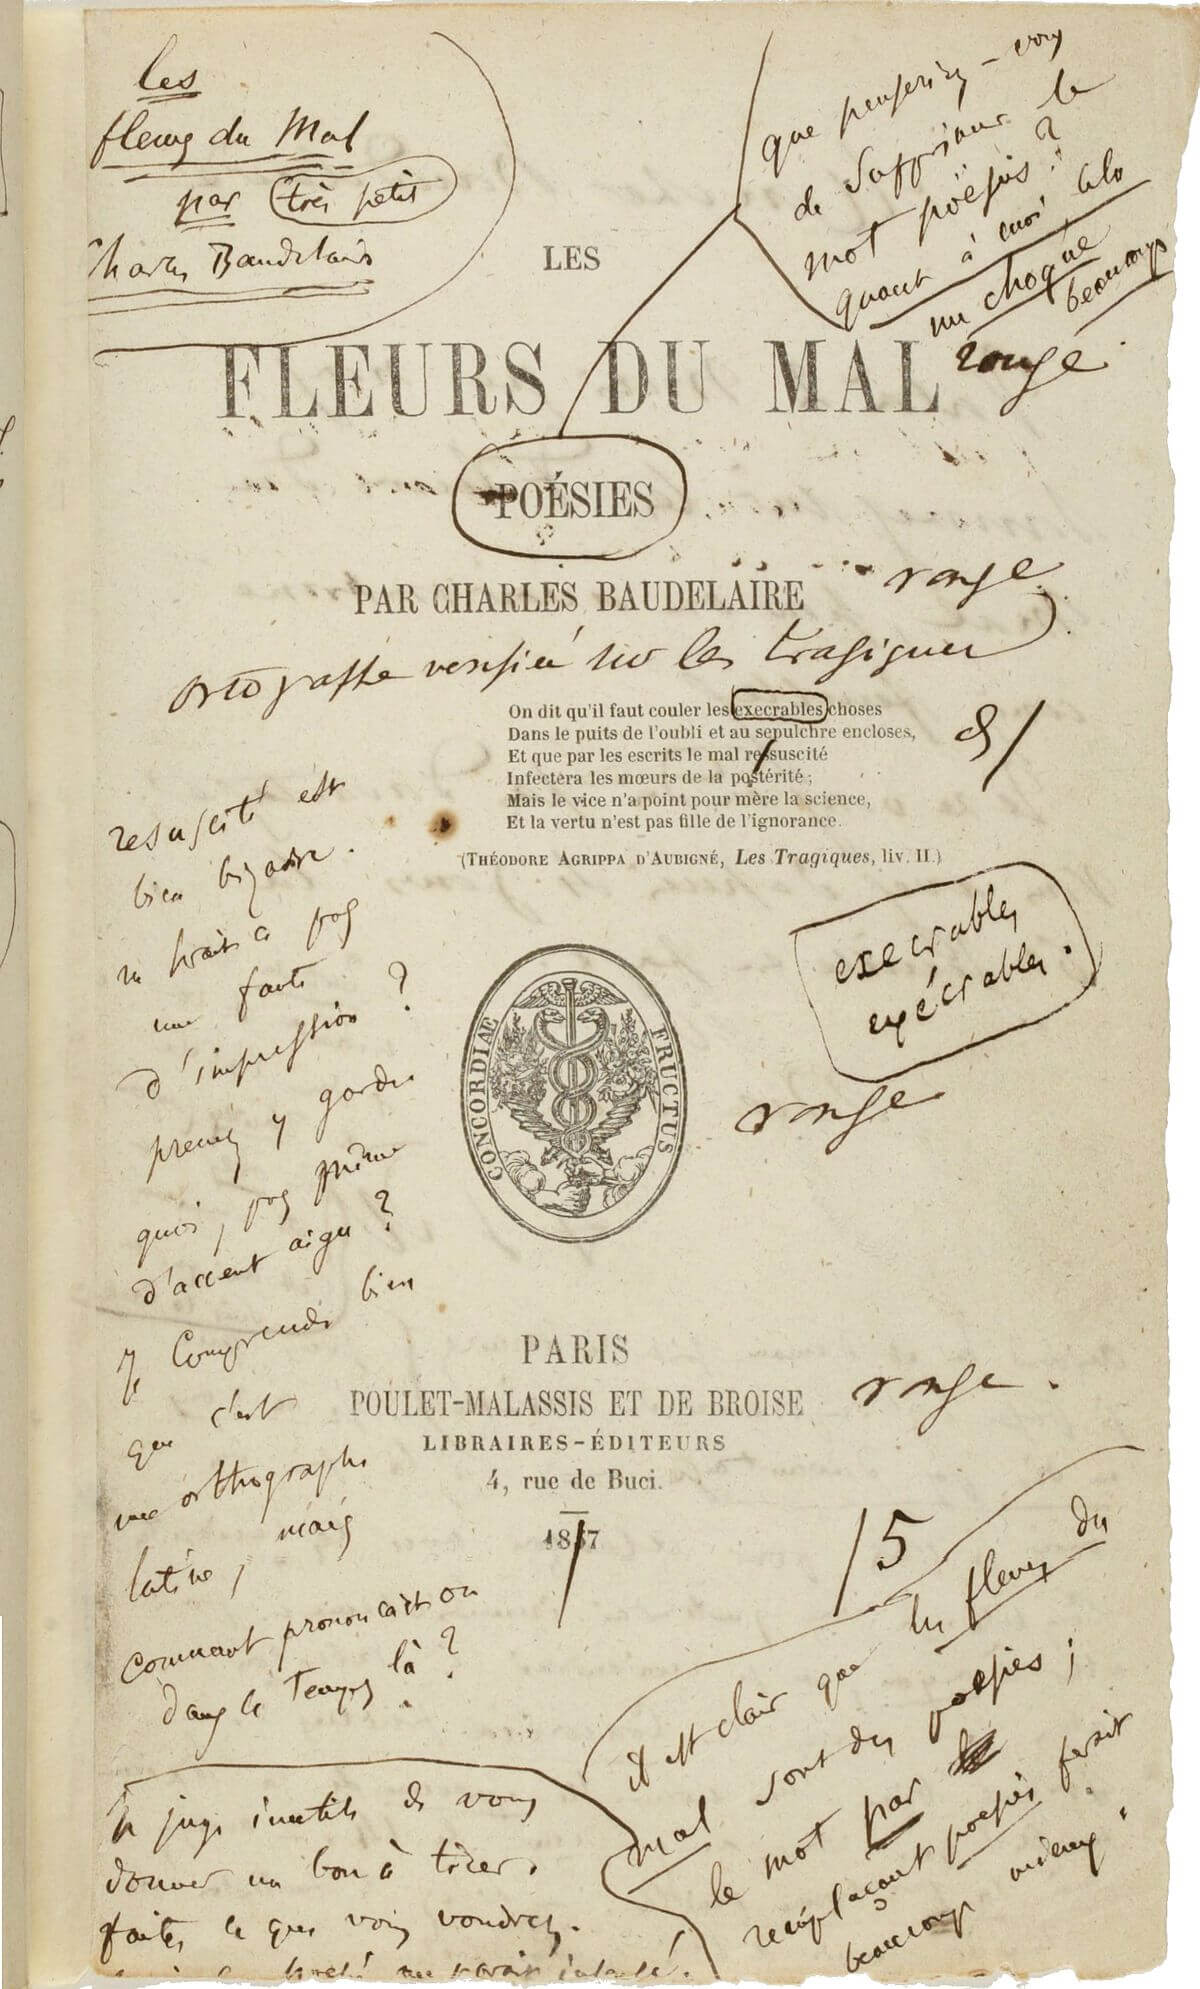 les
fleurs du Mal
par très petit
Charles Baudelaire
que penseriez-vous
de supprimer le
mot poësies?
quant à moi cela
me choque
beaucoup
LES
FLEURS DU MAL
rouge
POÉSIES
PAR CHARLES BAUDELAIRE
rouge
sur les tragiques
On dit qu'il faut couler les execrables choses
Dans le puits de l'oubli et au sepulchre encloses,
Et que par les escrits le mal ressuscité
Infectera les mœurs de la postérité;
Mais le vice n'a point pour mère la science,
Et la vertu n'est pas fille de l'ignorance.
(THÉODORE AGRIPPA D'AUBIGNÉ, Les Tragiques, liv. II.)
resuscité est
bien bizarre.
ne serait ce pas
une faute
d'impression?
prenez y garde
quoi, pas même
d'accent aigu?
Je comprends bien
que c'est
une orthographe
latine, mais
comment prononçait on
dans le temps là?
execrables
exécrables.
rouge
CONCORDIAE FRUCTUS
PARIS
POULET-MALASSIS ET DE BROISE
rouge.
LIBRAIRES-ÉDITEURS
4, rue de Buci.
1857
/5
il est clair que les fleurs du
mal sont des poësies;
le mot par
remplaçant poësies ferait
beaucoup mieux.
Je juge inutile de vous
donner un bon à tirer.
faites ce que vous voudrez.